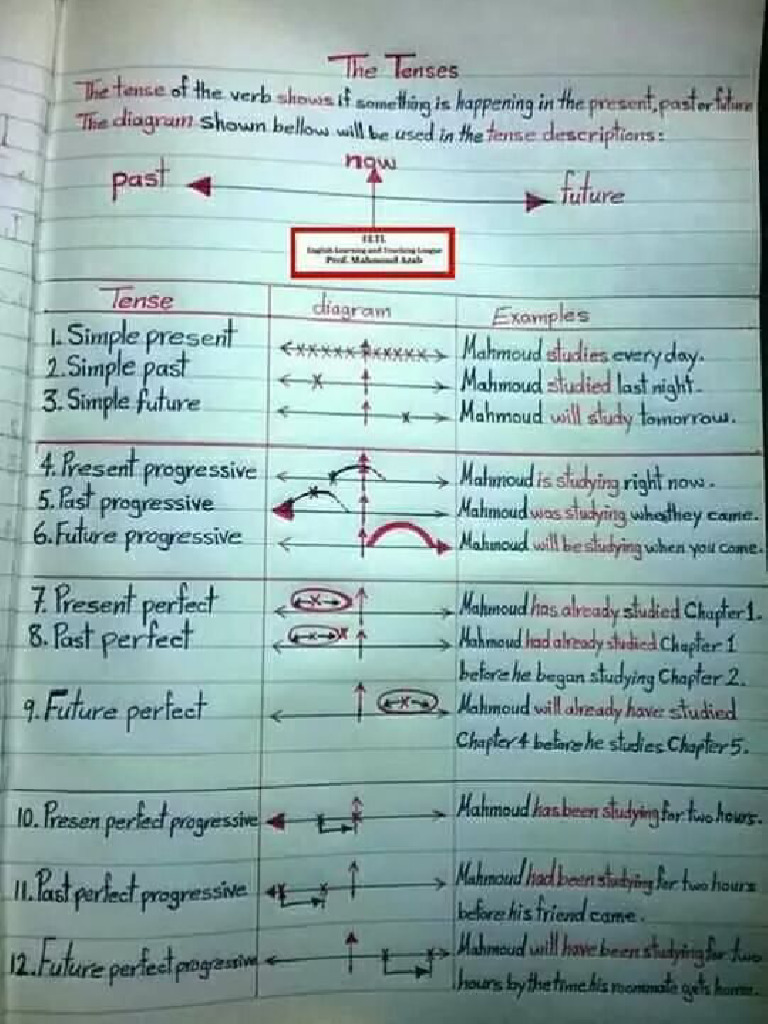 The Tenses
The tense of the verb shows if something is happening in the present, past or future
The diagram shown bellow will be used in the tense descriptions:
now
past future
EETL
English Learning and Teaching League
Prof. Mahmoud Arab
Tense diagram Examples
1. Simple present Mahmoud studies every day.
2. Simple past Mahmoud studied last night.
3. Simple future Mahmoud will study tomorrow.
4. Present progressive Mahmoud is studying right now.
5. Past progressive Mahmoud was studying they came.
6. Future progressive Mahmoud will be studying when you came.
7. Present perfect Mahmoud has already studied Chapter 1.
8. Past perfect Mahmoud had already studied Chapter 1
before he began studying Chapter 2.
9. Future perfect Mahmoud will already have studied
Chapter 4 before he studies Chapter 5.
10. Presen perfect progressive Mahmoud has been studying for two hours.
11. Past perfect progressive Mahmoud had been studying for two hours
before his friend came.
12. Future perfect progressive Mahmoud will have been studying for two
hours by the time his roommate gets home.